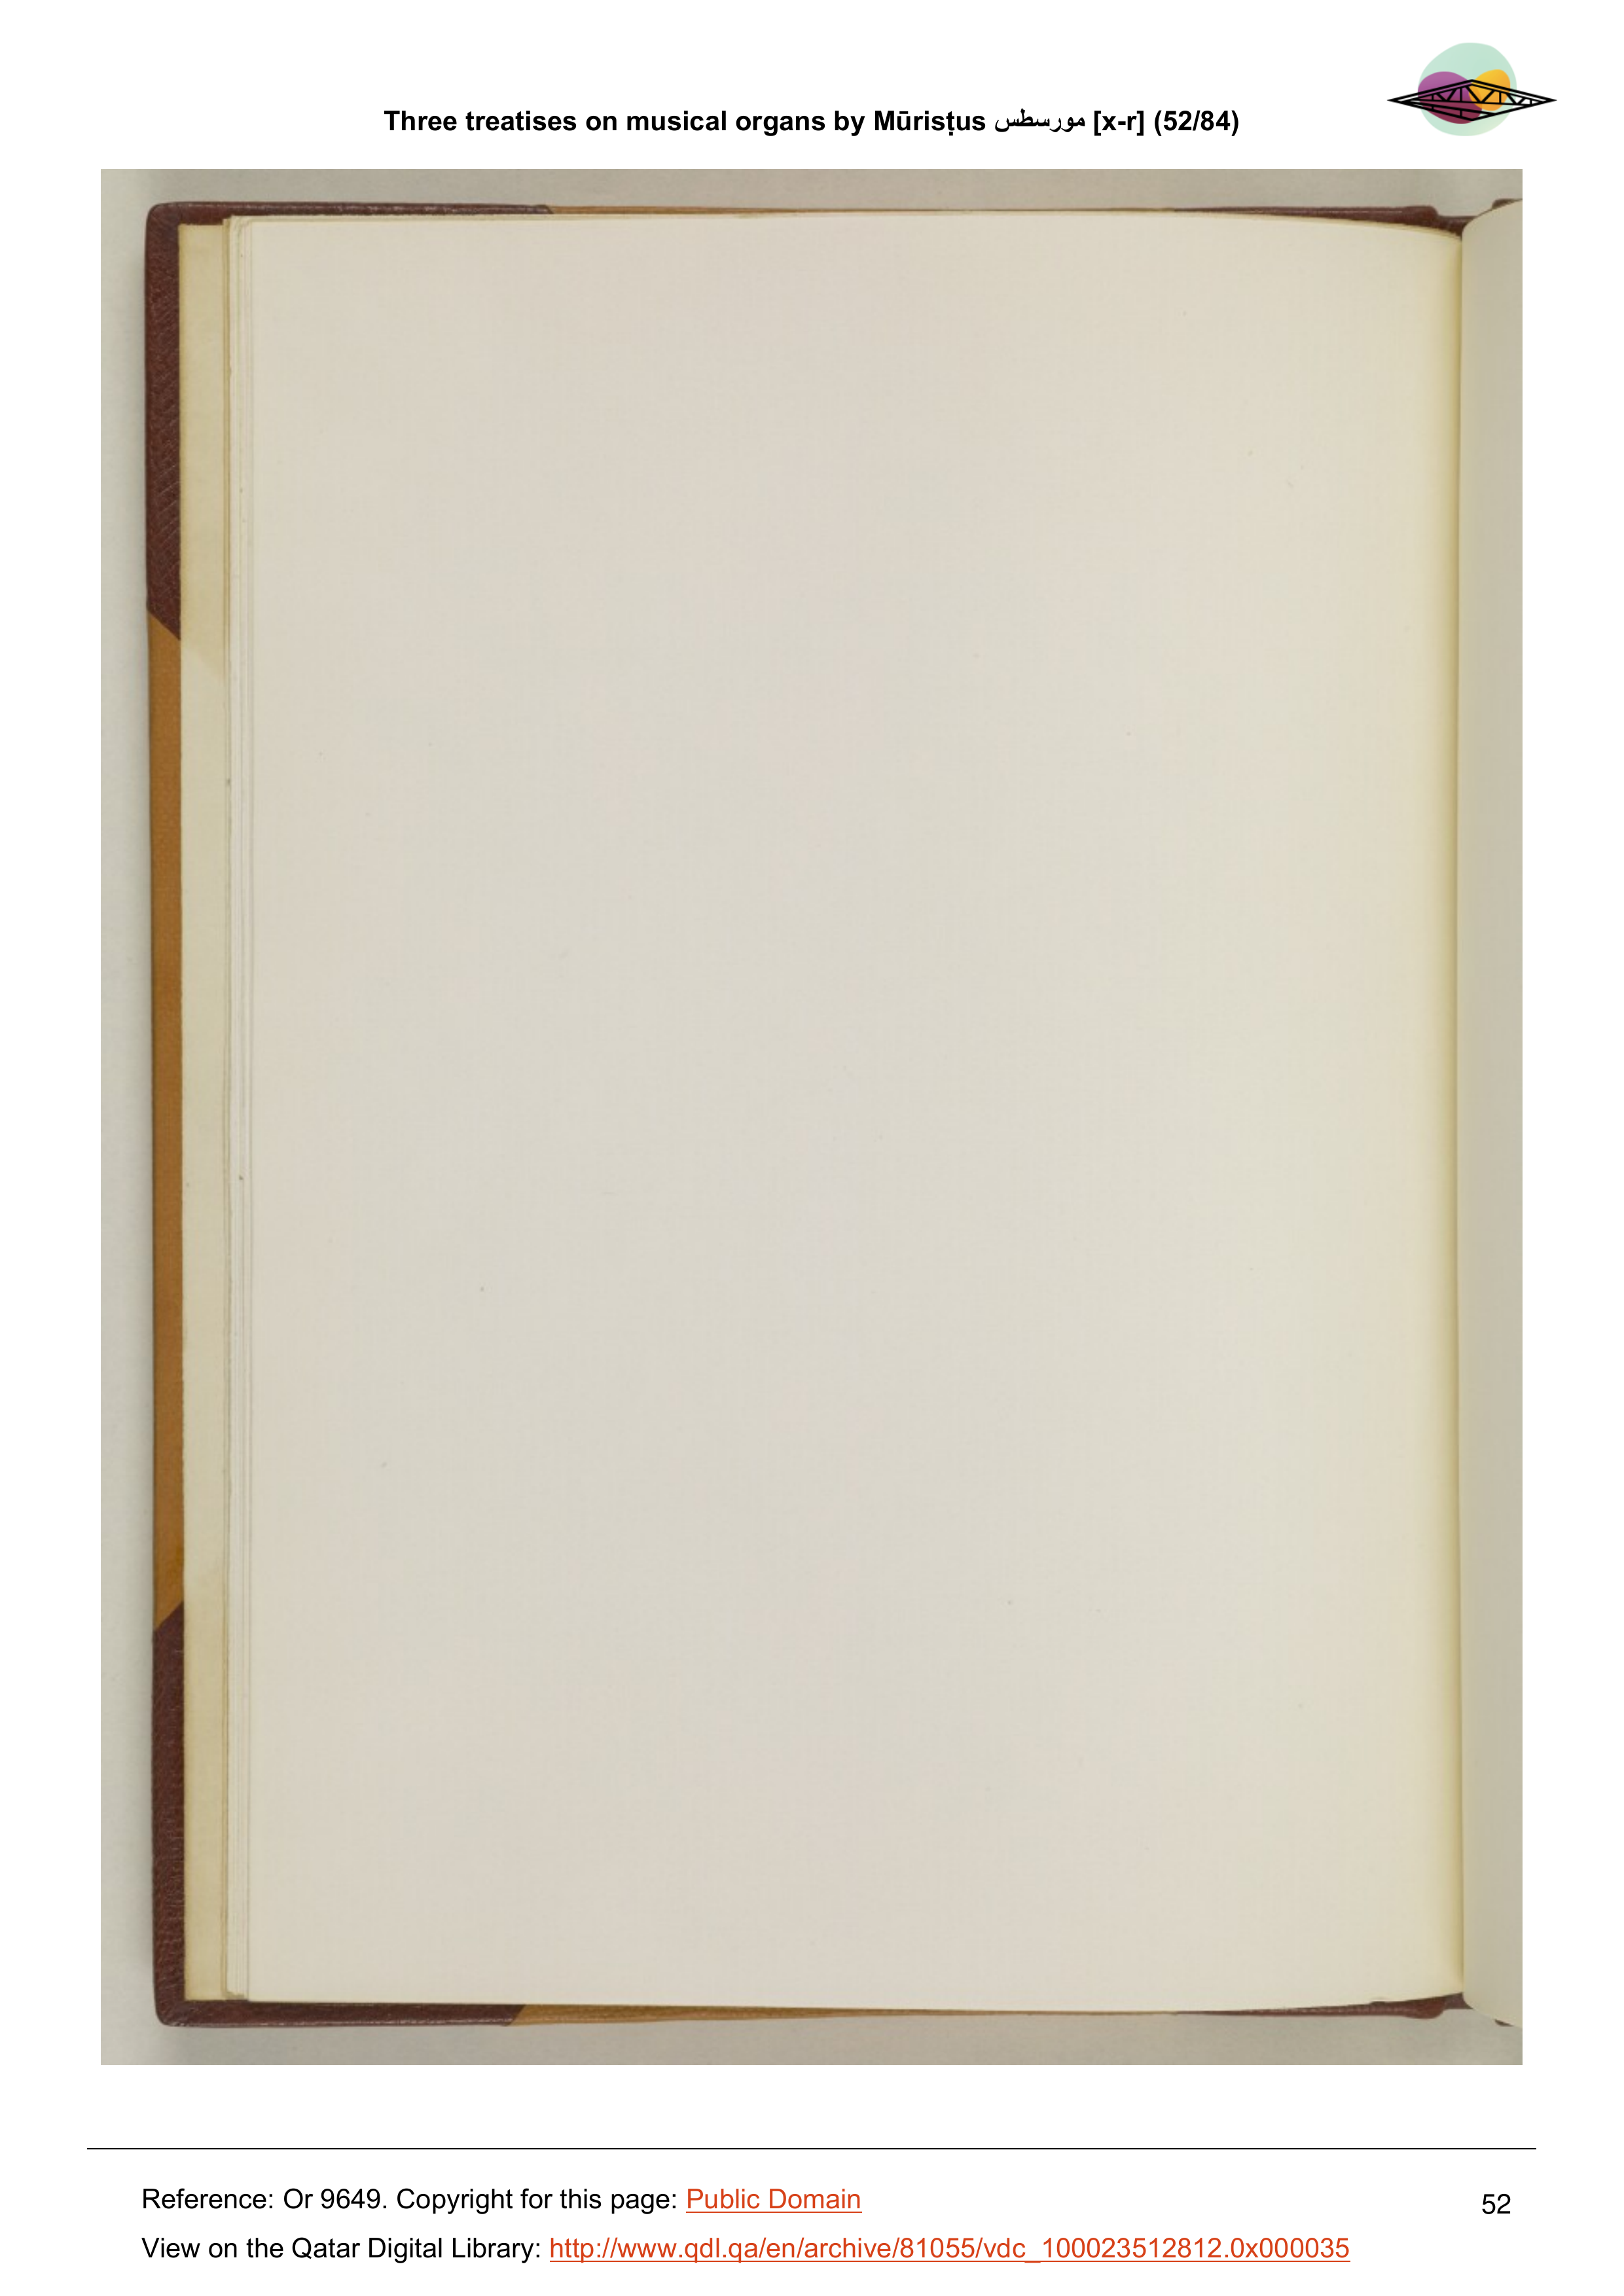 Three treatises on musical organs by Mūrisṭus مورسطس [x-r] (52/84)
Reference: Or 9649. Copyright for this page: Public Domain
52
View on the Qatar Digital Library: http://www.qdl.qa/en/archive/81055/vdc_100023512812.0x000035